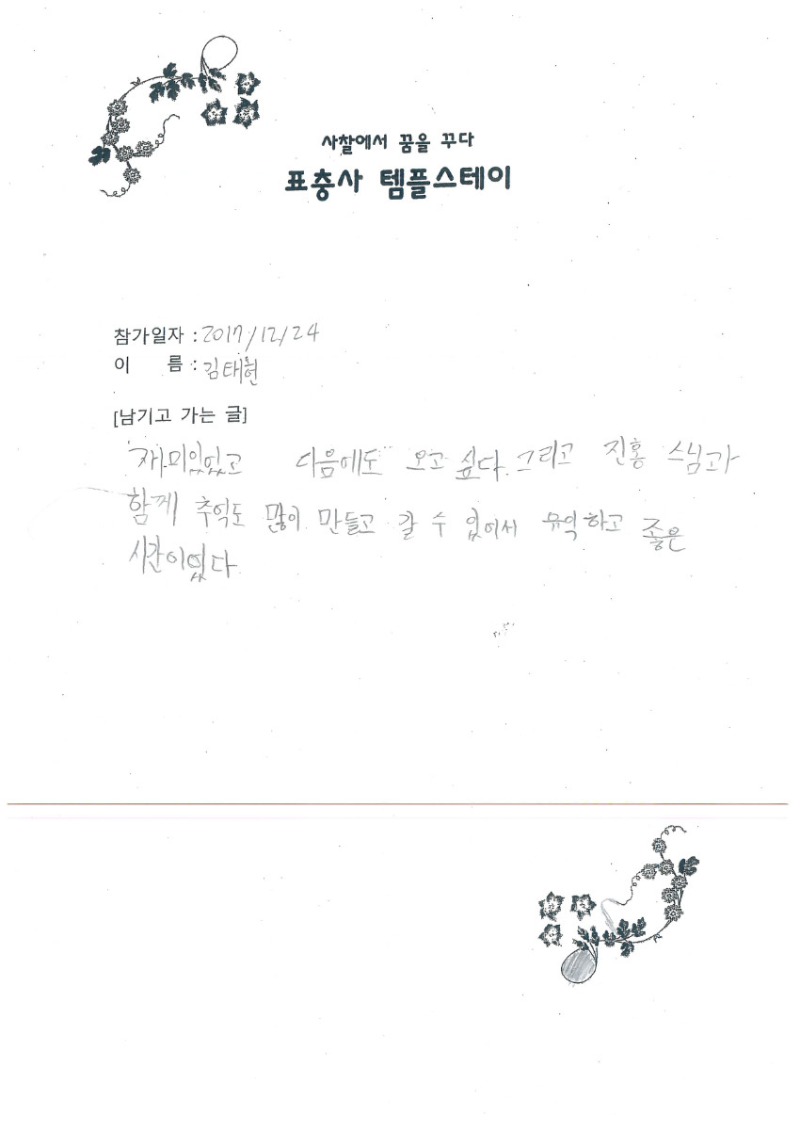 사찰에서 꿈을 꾸다
표충사 템플스테이
참가일자 : 2017/12/24
이 름 : 김태현
[남기고 가는 글]
재미있었고 다음에도 오고 싶다. 그리고 진홍 스님과
함께 추억도 많이 만들고 갈 수 있어서 유익하고 좋은
시간이었다